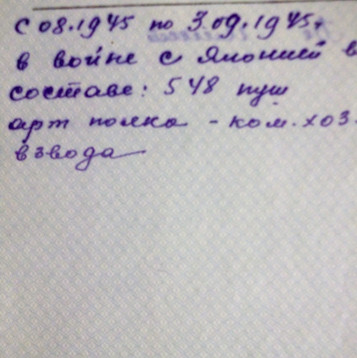 с 08.1945 по 3.09.1945г
в войне с Японией в
составе: 548 пуш
арт полка - ком. хоз.
взвода